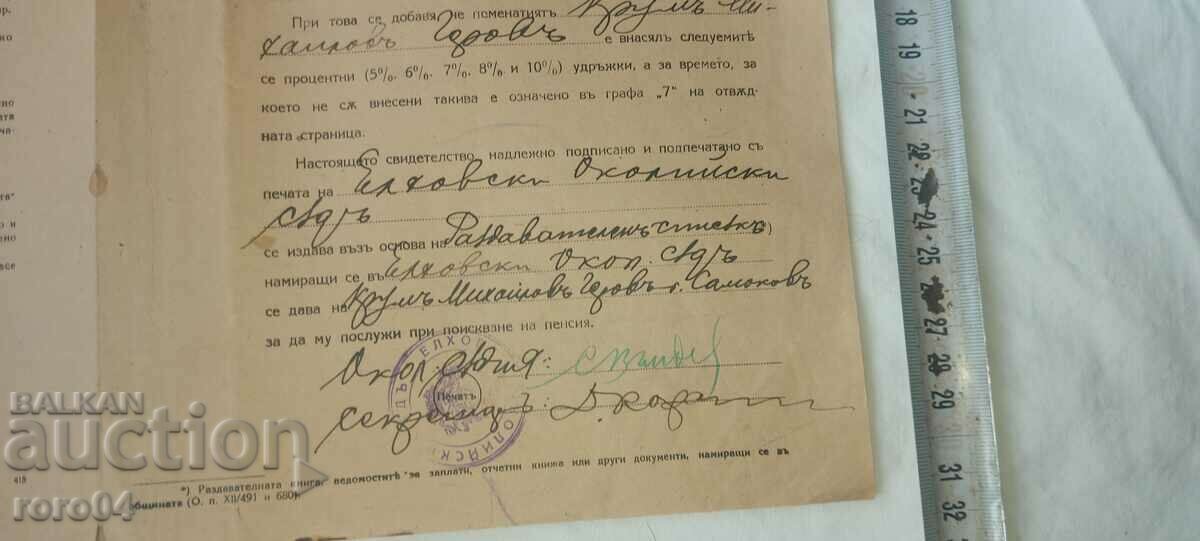 При това се добавя че поменатиятъ Крумъ Ми-
хайловъ Геровъ е внасялъ следуемитѣ
се процентни (5%, 6%, 7%, 8% и 10%) удръжки, а за времето, за
което не сѫ внесени такива е означено въ графа „7" на отвѫд-
ната страница.
Настоящето свидетелство, надлежно подписано и подпечатано съ
печата на Елховски Околийски
сѫдъ
се издава възъ основа на Раздавателенъ списъкъ *)
намиращи се въ Елховски Окол. сѫдъ
се дава на Крумъ Михайловъ Геровъ г. Самоковъ
за да му послужи при поискване на пенсия.
Окол. Сѫдия:
Печатъ
Секретарь:
*) Раздавателната книга, ведомоститѣ за заплати, отчетни книжа или други документи, намиращи се въ
общината (О. п. XII/491 и 680).
418
BALKAN
auction
roro04
18 19 20 21 22 23 24 25 26 27 28 29 30 31 32